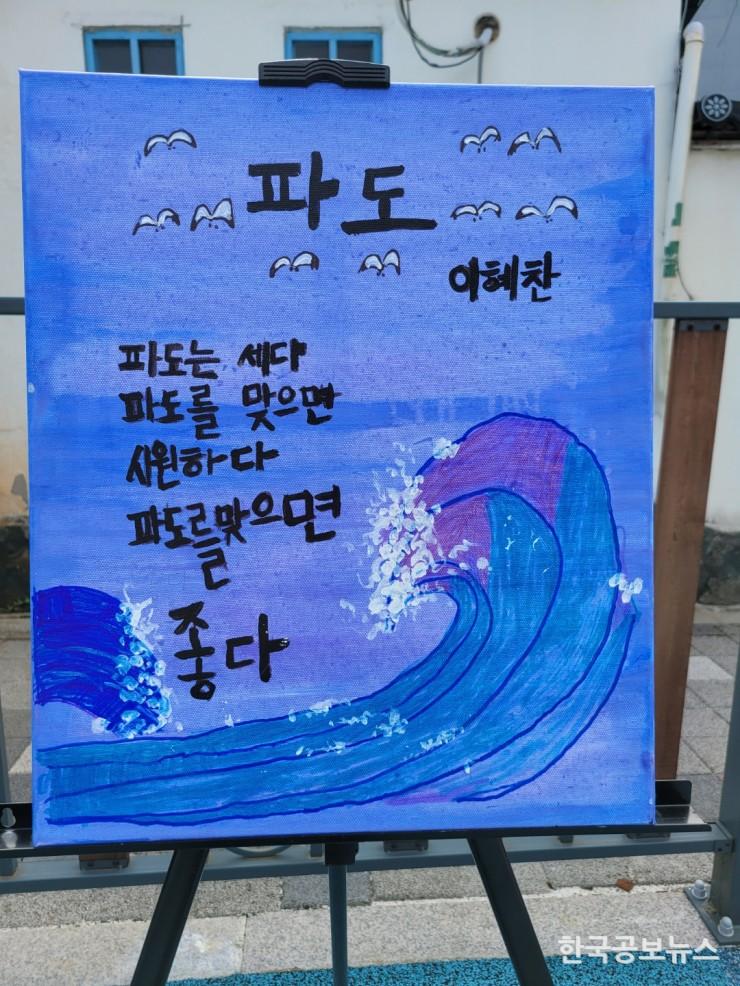 파도
이혜찬
파도는 세다
파도를 맞으면
시원하다
파도를맞으면
좋다
한국공보뉴스